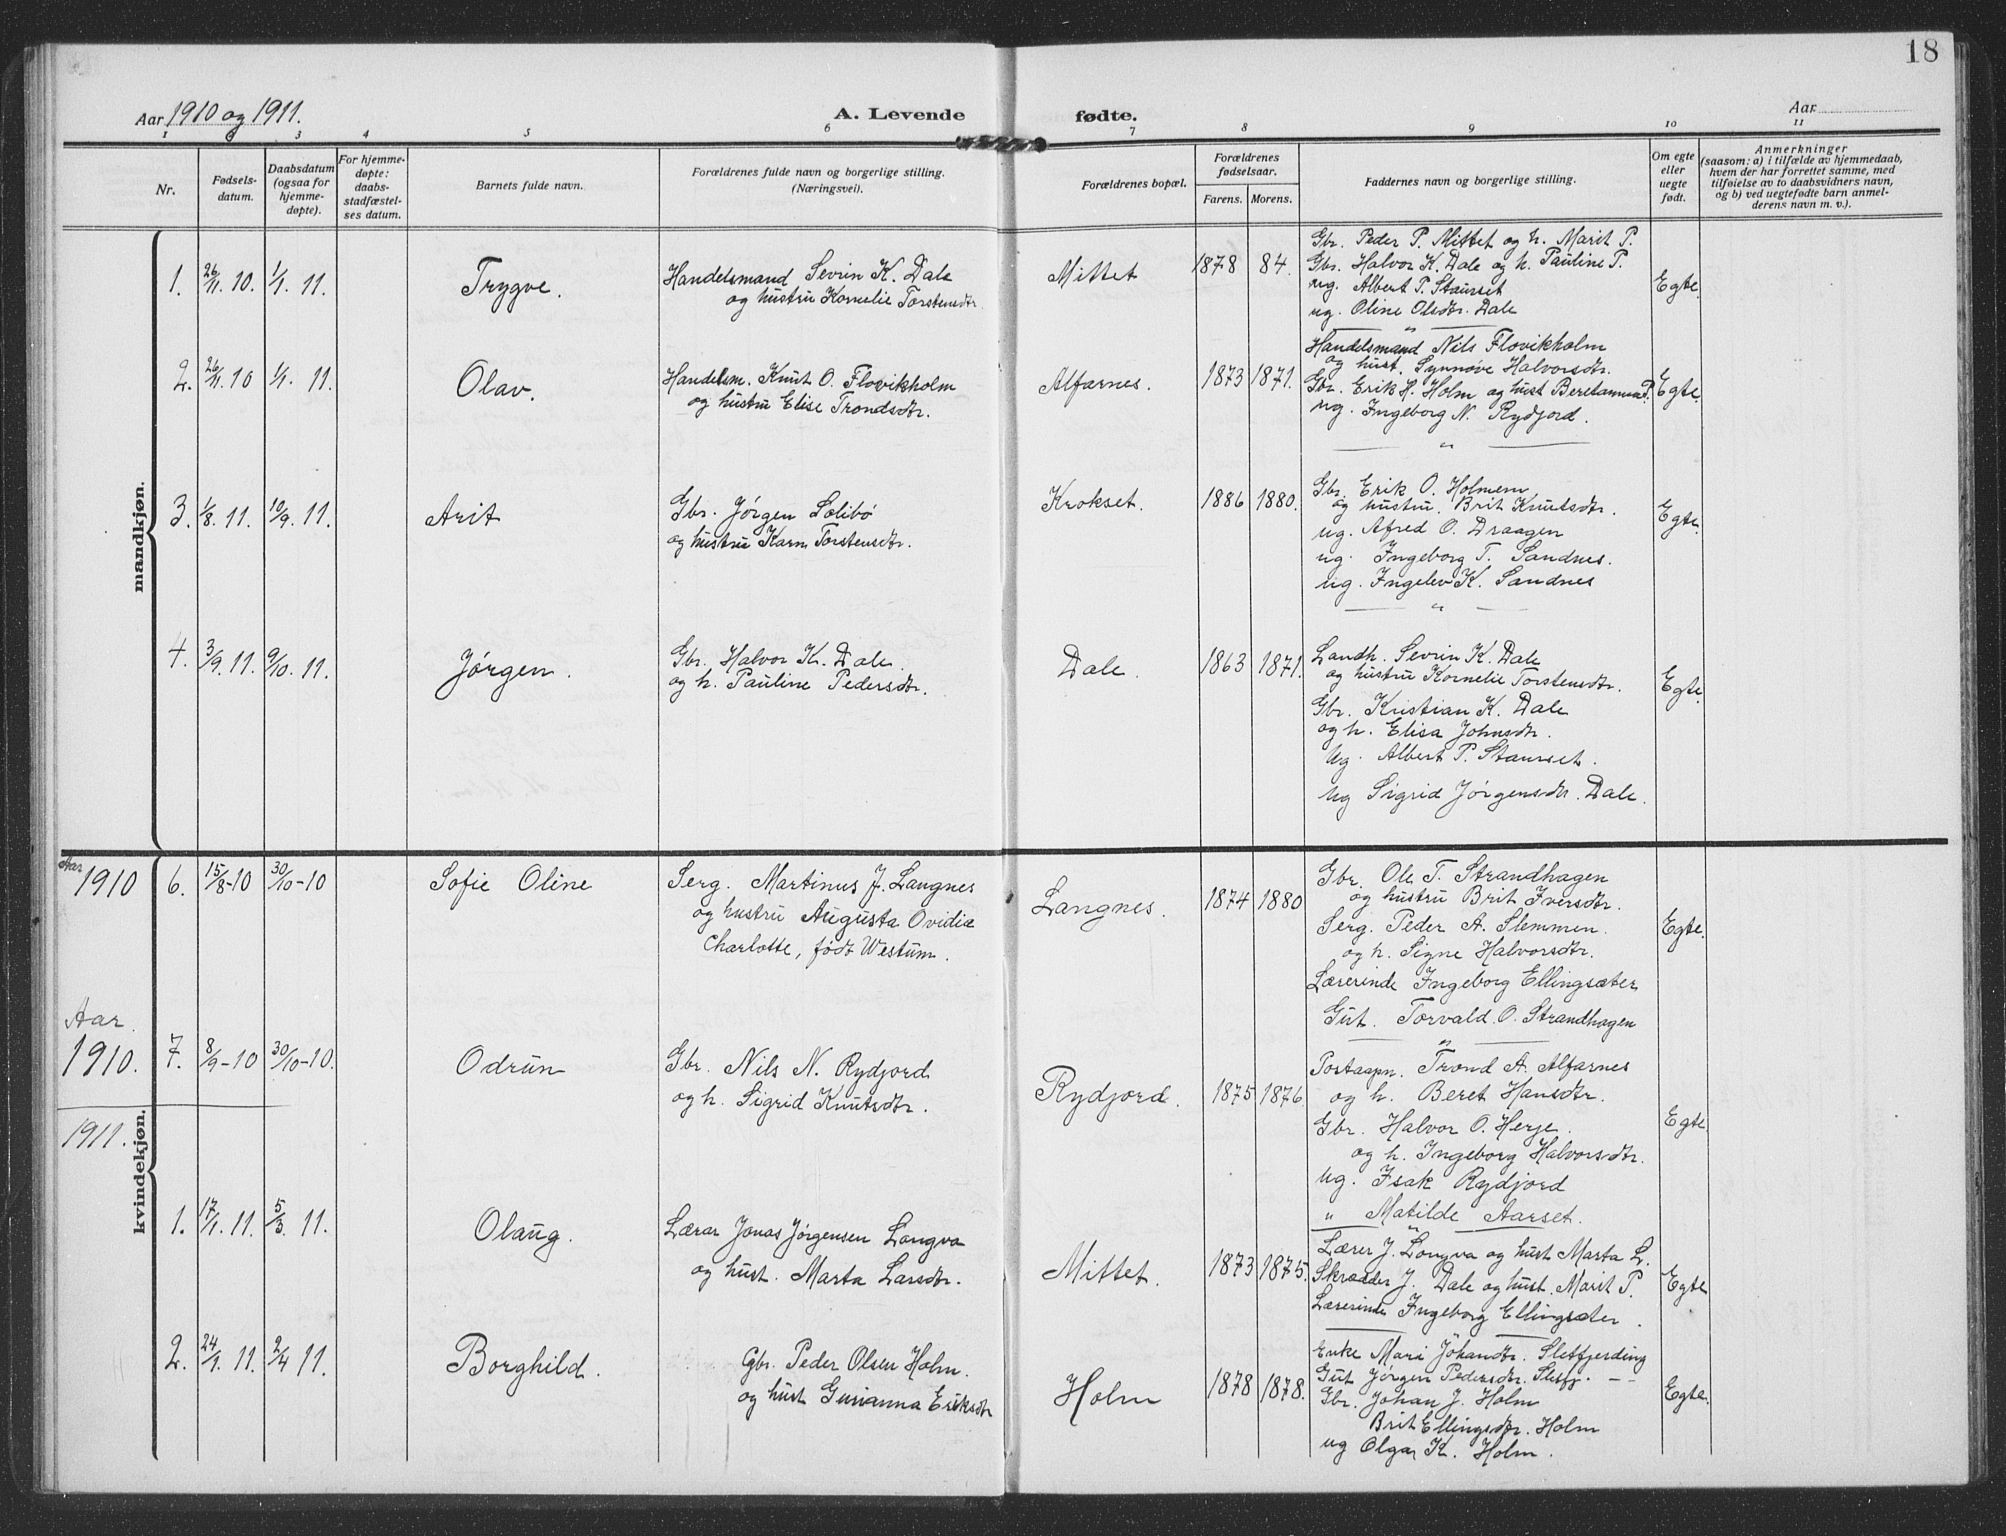 18
Aar 1910 og 1911.
A. Levende fødte.
Aar
1 2 3 4 5 6 7 8 9 10 11
Nr.
Fødsels-
datum.
Daabsdatum
(ogsaa for
hjemme-
døpte).
For hjemme-
døpte:
daabs-
stadfæstel-
ses datum.
Barnets fulde navn.
Forældrenes fulde navn og borgerlige stilling.
(Næringsvei).
Forældrenes bopæl.
Forældrenes
fødselsaar.
Farens. Morens.
Faddernes navn og borgerlige stilling.
Om egte
eller
uegte
født.
Anmerkninger
(saasom: a) i tilfælde av hjemmedaab,
hvem der har forrettet samme, med
tilføielse av to daabsvidners navn,
og b) ved uegtefødte barn anmel-
derens navn m. v.).
mandkjøn.
1. 26/11. 10. 1/1. 11. Trygve.
Handelsmand Sevrin K. Dale
og hustru Kornelie Torstensdtr.
Mittet 1878 84.
Gbr. Peder P. Mittet og h. Marit P.
Gbr. Halvor K. Dale og h. Pauline P.
ug. Albert P. Staurset
ug. Oline Olsdtr. Dale
Egte.
2. 26/11. 10 1/1. 11. Olav.
Handelsm. Knut O. Flovikholm
og hustru Elise Trondsdtr.
Alfarnes. 1873 1871.
Handelsmand Nils Flovikholm
og hust. Synnøve Halvorsdtr.
Gbr. Erik H. Holm og hust Beretanna P.
ug. Ingeborg N. Rydjord.
Egte.
3. 1/8. 11. 10/9. 11. Arit
Gbr. Jørgen Solibø
og hustru Karn Torstensdtr.
Krokset. 1886 1880.
Gbr. Erik O. Holmem
og hustru Brit Knutsdtr.
ug. Afred O. Draagen
ug. Ingeborg T. Sandnes.
ug. Ingelev K. Sandnes
Egte.
4. 3/9. 11. 9/10. 11. Jørgen.
Gbr. Halvor K. Dale.
og h. Pauline Pedersdtr.
Dale. 1863 1871.
Landh. Sevrin K. Dale
og hustru Kornelie Torstensdtr.
Gbr. Kristian K. Dale
og h. Elisa Johnsdtr.
Ug. Albert P. Staurset.
Ug Sigrid Jørgensdtr. Dale.
Egte.
kvindekjøn.
Aar
1910 6. 15/8-10 30/10-10 Sofie Oline
Serg. Martinus J. Langnes
og hustru Augusta Ovidia
Charlotte, født Westum.
Langnes. 1874 1880
Gbr. Ole T. Strandhagen
og hustru Brit Iversdtr.
Serg. Peder A. Slemmen.
og h. Signe Halvorsdtr.
Lærerinde Ingeborg Ellingsæter
Gut. Torvald O. Strandhagen
Egte.
Aar
1910. 7. 8/9-10 30/10-10. Odrun
Gbr. Nils N. Rydjord
og h. Sigrid Knutsdtr.
Rydjord. 1875 1876
Postaapn. Trond A. Alfarnes
og h. Beret Hansdtr.
Gbr. Halvor O. Herje.
og h. Ingeborg Halvorsdtr.
Ug. Isak Rydjord
" Matilde Aarset.
Egte
1911.
1. 17/1. 11. 5/3. 11. Olaug.
Lærar Jonas Jørgensen Longva
og hust. Marta Larsdtr.
Mittet. 1873 1875.
Lærer J. Longva og hust Marta L.
Skrædder J. Dale og hust. Marit P.
Lærerinde Ingeborg Ellingsæter.
Egte
2. 24/1. 11. 2/4 11. Borghild.
Gbr. Peder Olsen Holm.
og hust Gurianna Eriksdtr
Holm 1878 1878.
Enke Mari Johandtr. Sletfjerding
Gut Jørgen Pedersdtr. Sletfj.
Gbr. Johan J. Holm
Brit Ellingsdtr. Holm
ug Olga K. Holm.
Egte.